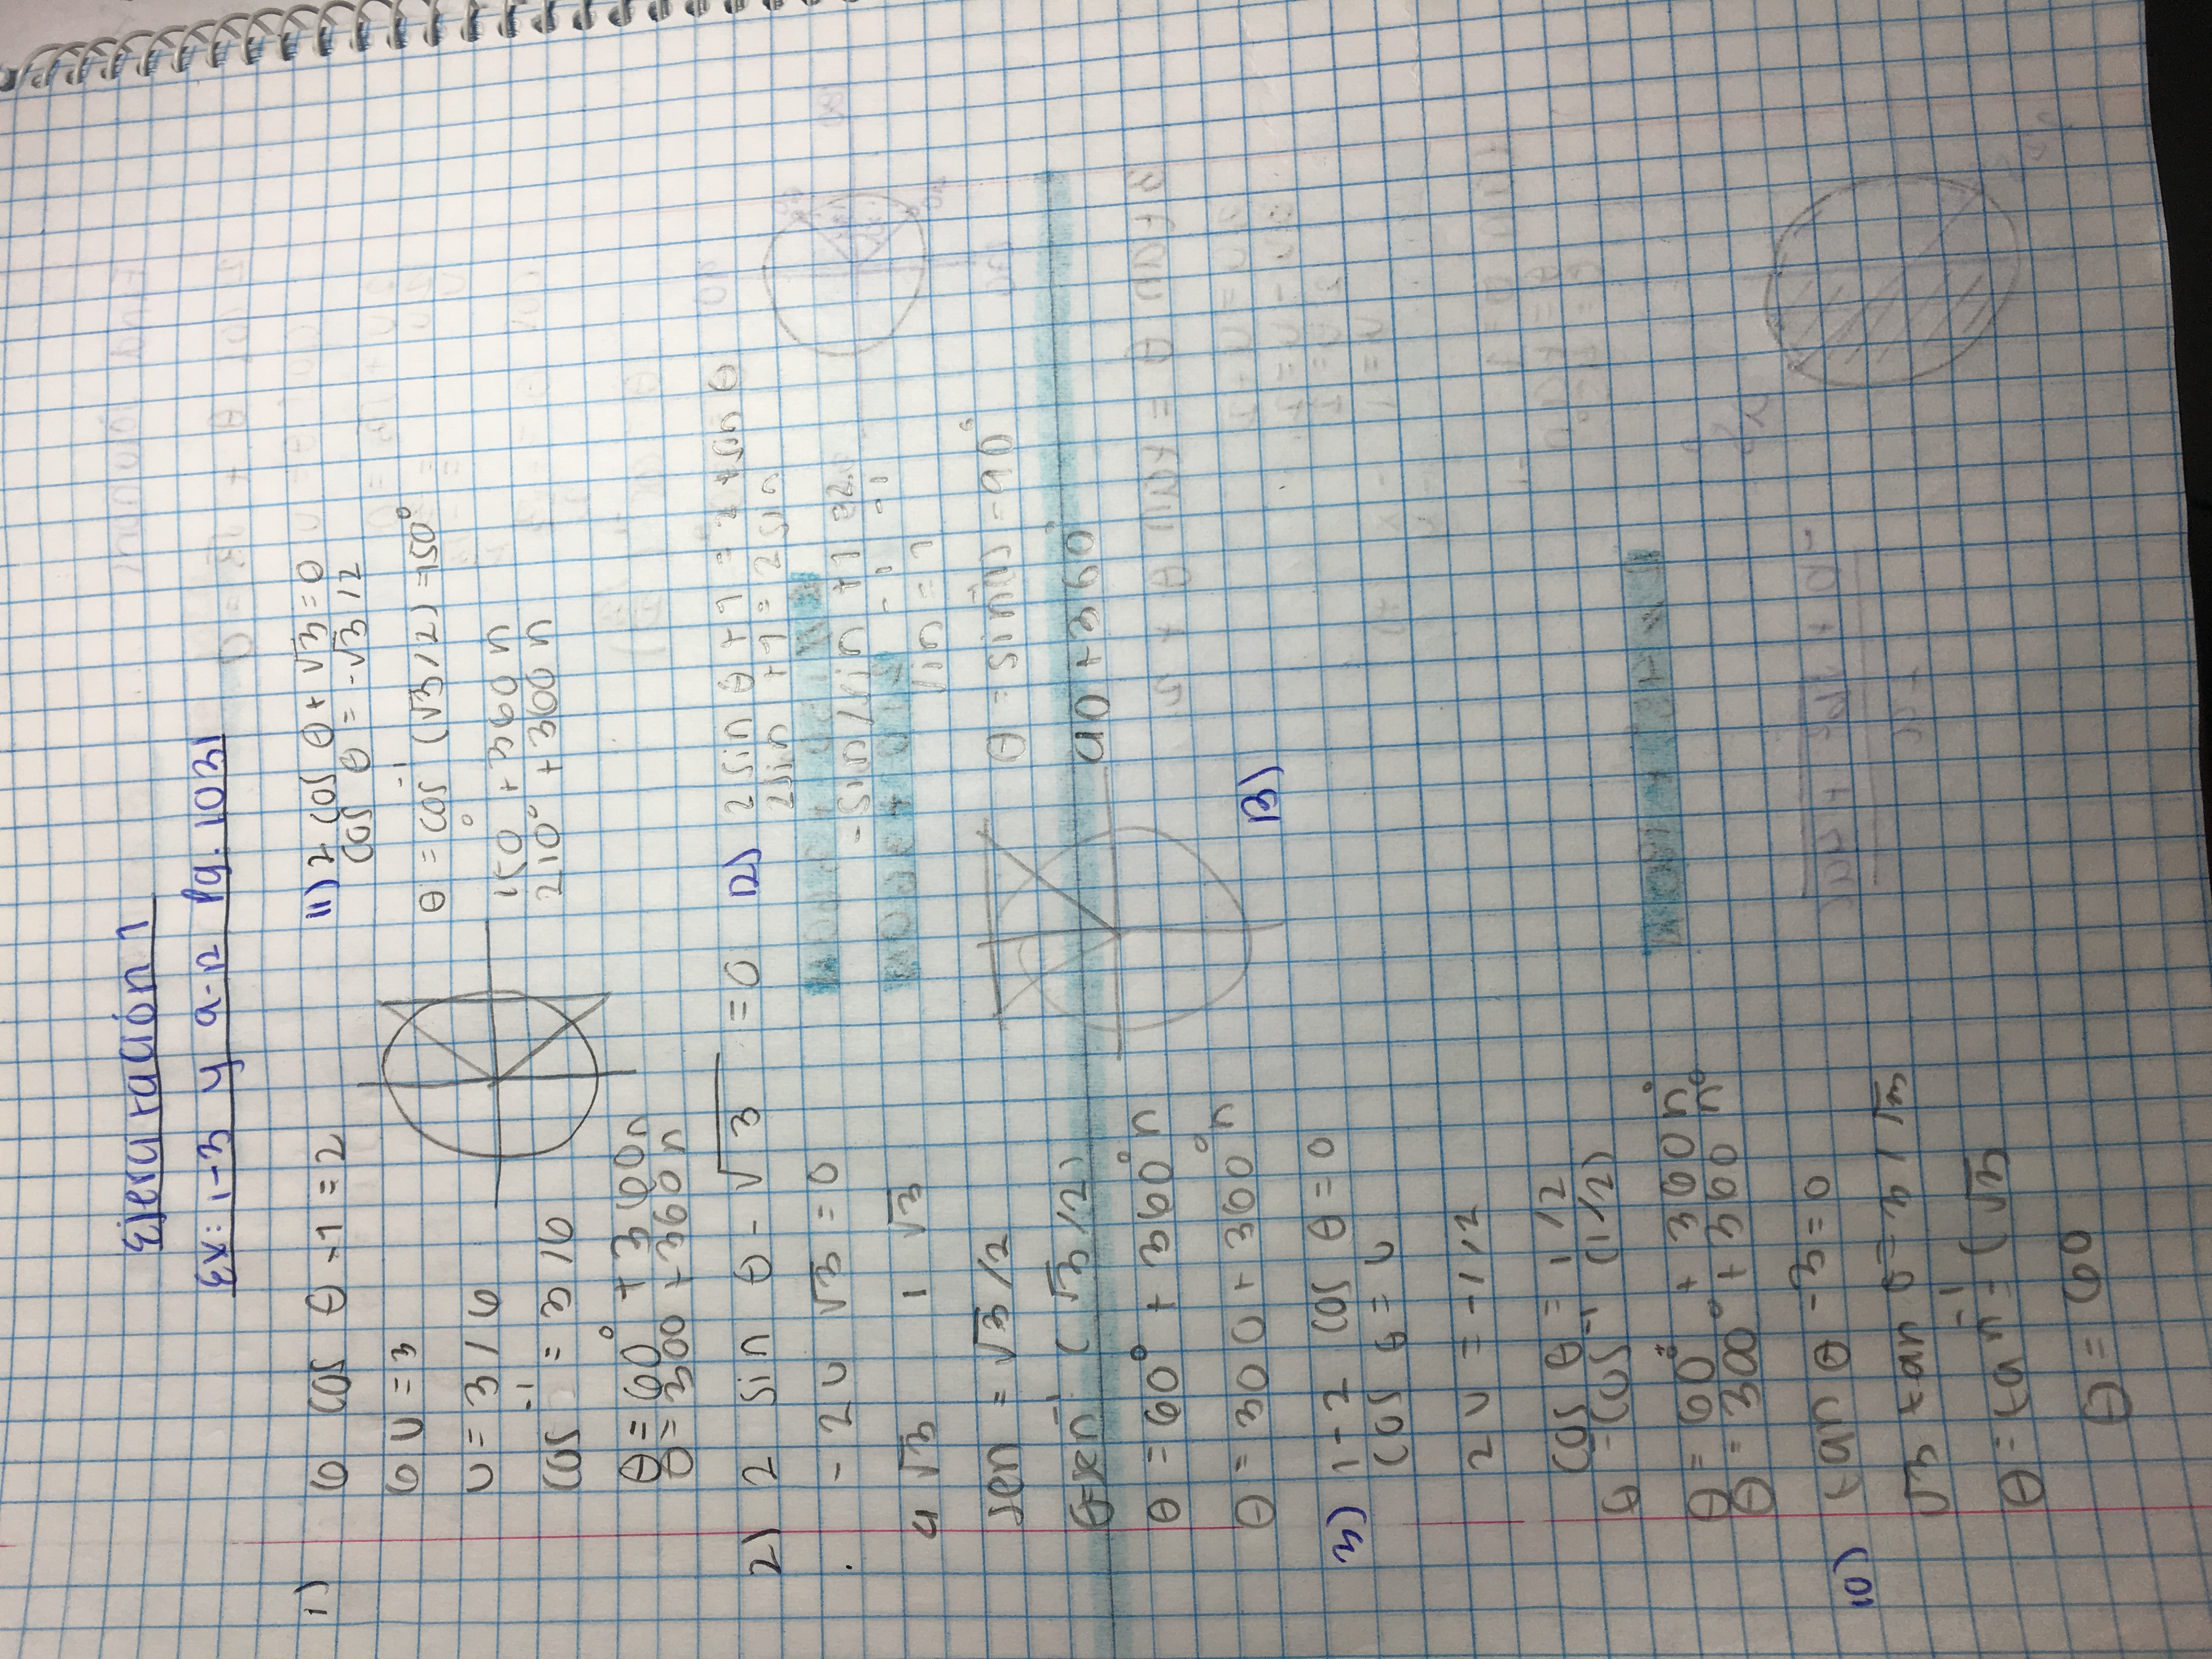 Ejercitación 1
Ex: 1-3 y 9-12 Pg. 1031
1) 6 cos θ - 1 = 2
6 u = 3
u = 3/6
cos⁻¹ = 3/6
θ = 60° + 360n
θ = 300 + 360n
2) 2 sin θ - √3 = 0
- 2u √3 = 0
4 √3 1 √3
sen = √3/2
θ = sen⁻¹ (√3/2)
θ = 60° + 360° n
θ = 300 + 360° n
3) 1 - 2 cos θ = 0
cos θ = u
2u = -1/2
cos θ = 1/2
θ = cos⁻¹ (1/2)
θ = 60° + 360 n°
θ = 300° + 360 n°
10) tan θ - 3 = 0
√3 tan θ = 3/√3
θ = tan⁻¹ = (√3
θ = 60
11) 2 cos θ + √3 = 0
cos θ = -√3/2
θ = cos⁻¹ (√3/2) = 150°
150° + 360 n
210° + 300 n
12) 2 sin θ + 1 = 2 + sin θ
2sin + 1 = 2 sin
- sin / sin + 1 = 2
- 1 - 1
sin = 1
θ = sin⁻¹(1) = 90°
90 + 360°
13)